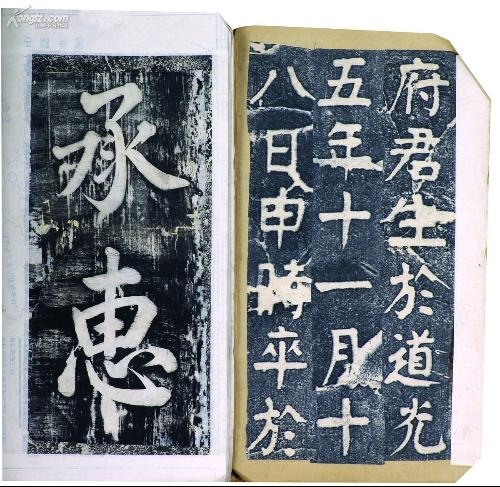 府君生於道光
五年十一月十
八日申時卒於
承惠
Kongfz.com